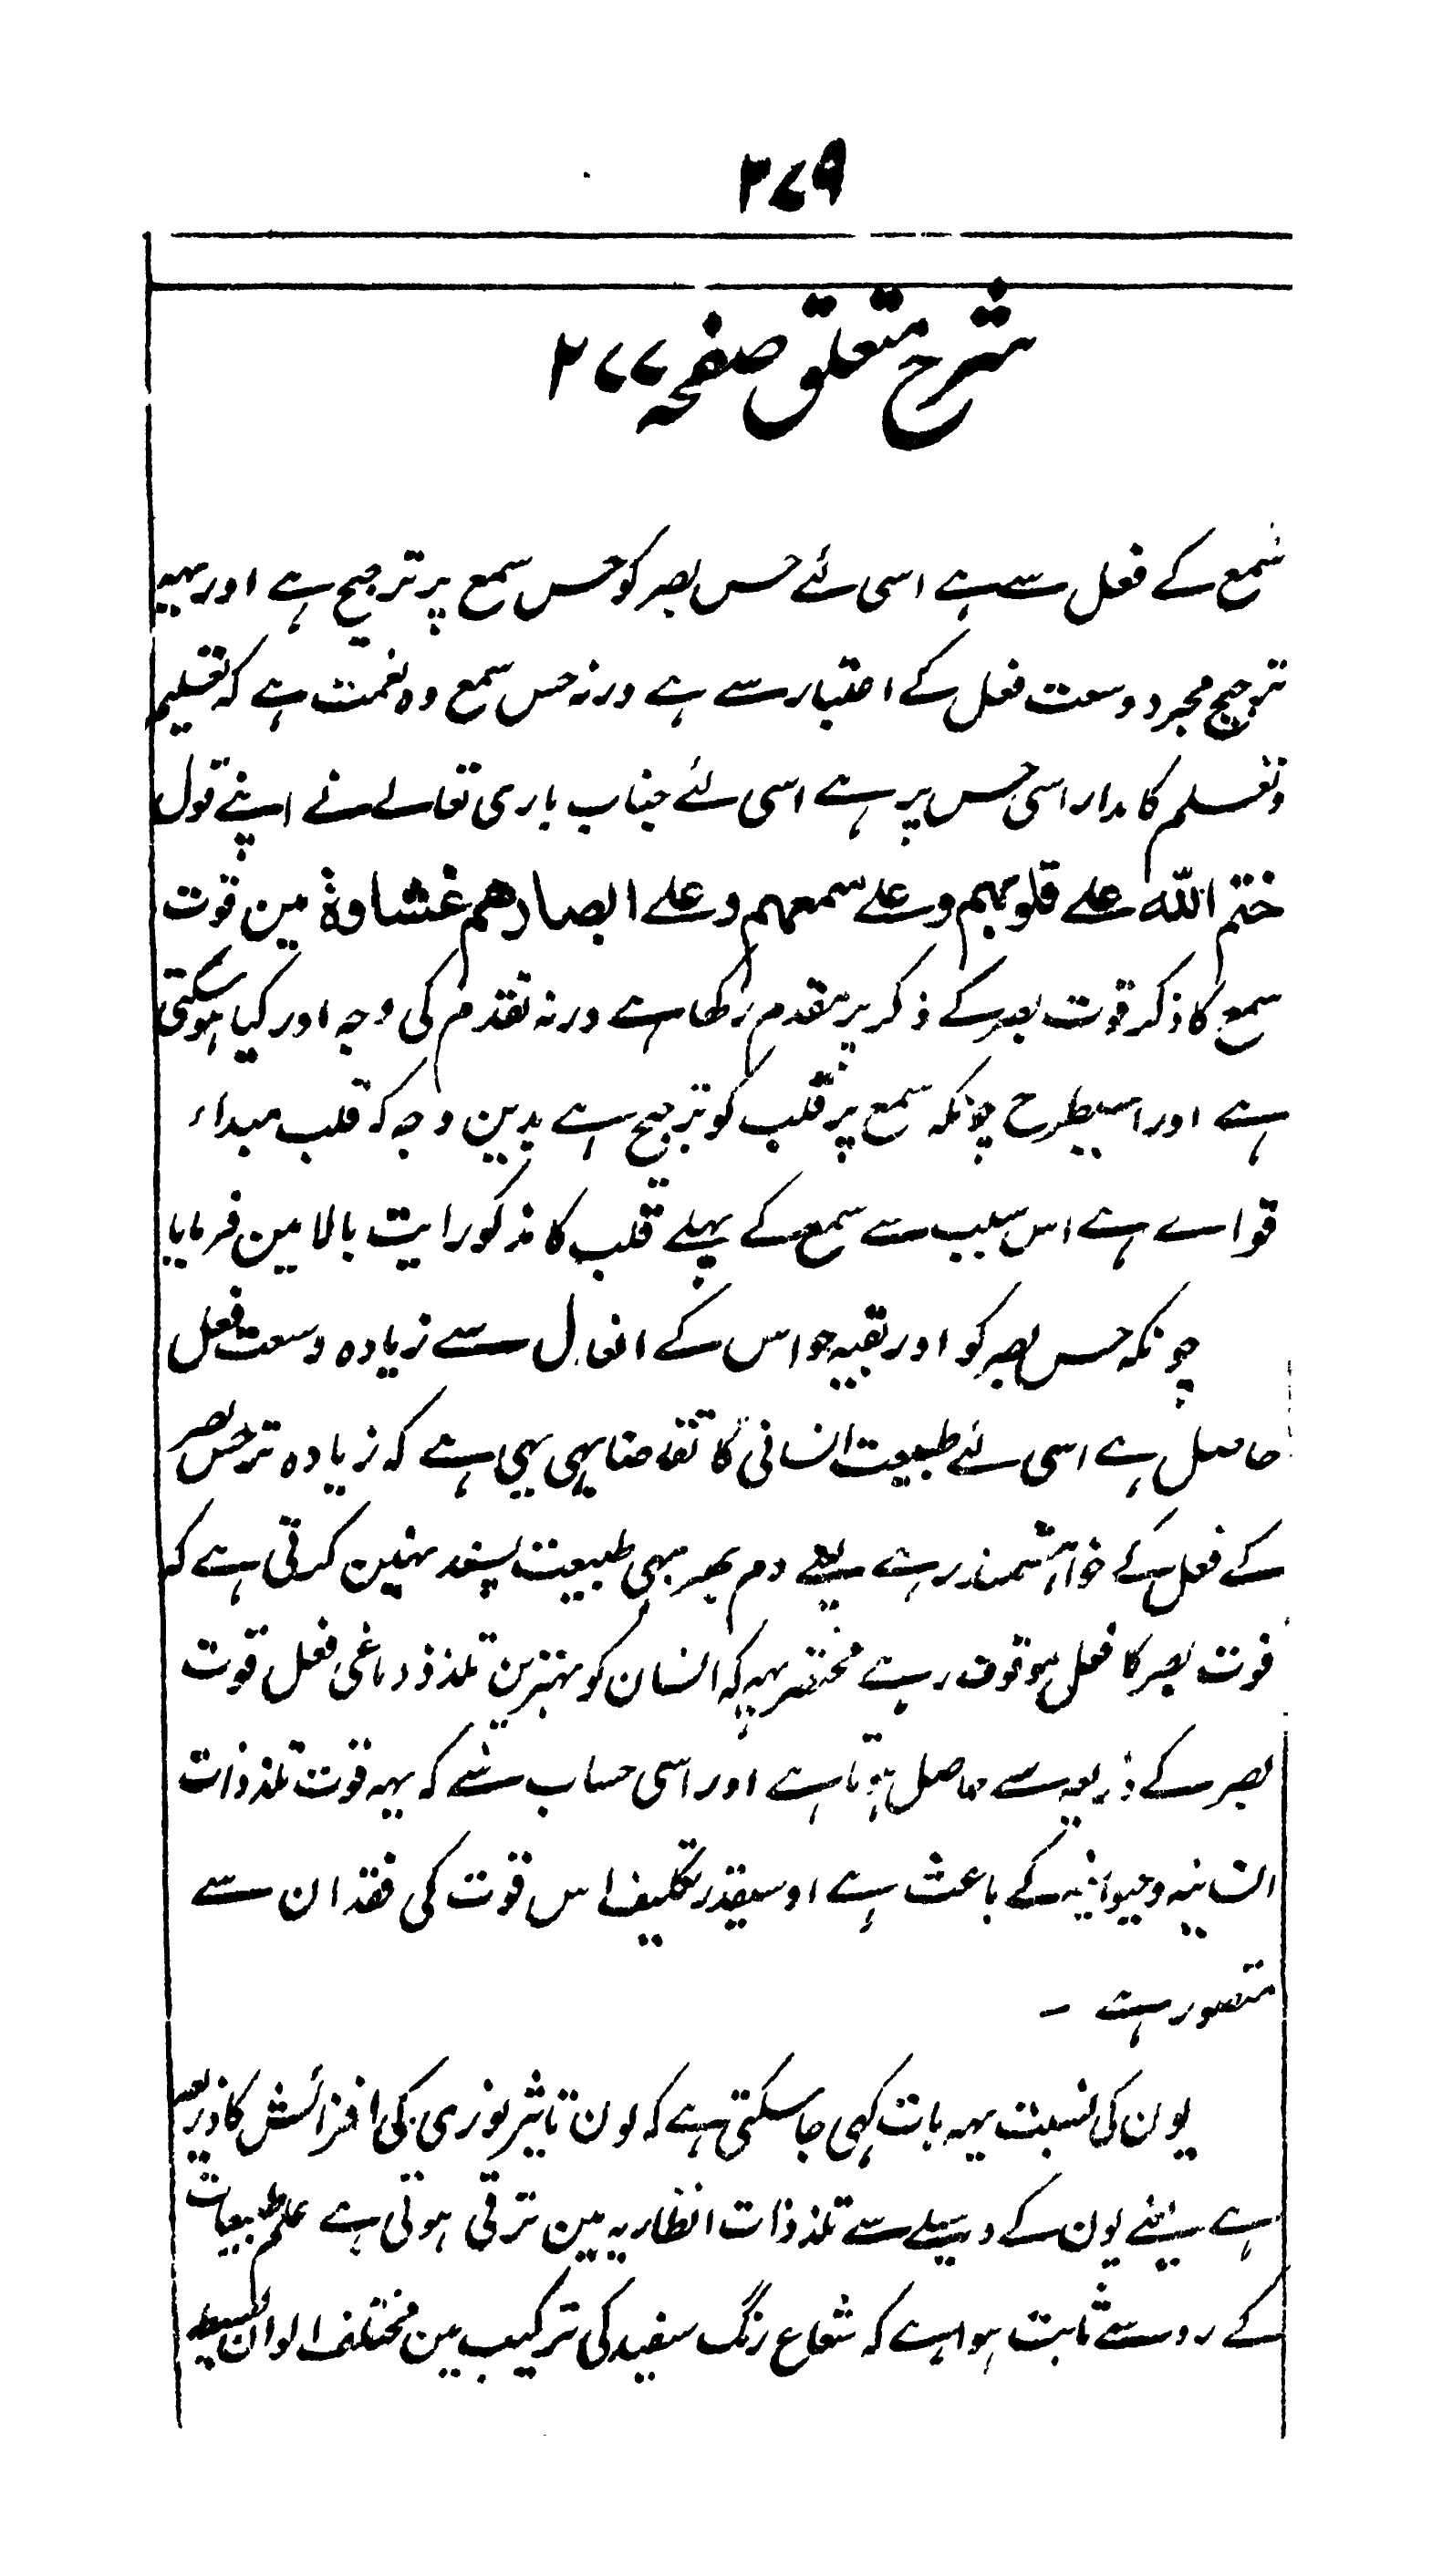 ۲۷۹
شرح متعلق صفحہ ۲۷۷
سمع کے فعل سے ہے اسی لئے حس بصر کو حس سمع پر ترجیح ہے اور یہہ
ترجیح مجرد وسعت فعل کے اعتبار سے ہے ورنہ حس سمع وہ نعمت ہے کہ تعلیم
وتعلم کا مدار اسی حس پر ہے اسی لئے جناب باری تعالے نے اپنے قول
ختم اللہ علے قلوبہم وعلے سمعہم وعلے ابصارھم غشاوۃ مین قوت
سمع کا ذکر قوت بصر کے ذکر پر مقدم رکھا ہے ورنہ تقدم کی وجہ اور کیا ہو سکتی
ہے اور اسیطرح چونکہ سمع پر قلب کو ترجیح ہے بدین وجہ کہ قلب مبداء
قواے ہے اس سبب سے سمع کے پہلے قلب کا مذکور ایت بالا مین فرمایا
چونکہ حس بصر کو اور بقیہ حواس کے افعال سے زیادہ وسعت فعل
حاصل ہے اسی لئے طبیعت انسانی کا تقاضا یہی یہی ہے کہ زیادہ تر حس بصر
کے فعل کے خواہشمند رہے یعنے دم بھر بہی طبیعت پسند نہین کرتی ہے کہ
قوت بصر کا فعل موقوف رہے مختصر یہہ کہ انسان کو بہترین تلذذ دماغی فعل قوت
بصر کے ذریعہ سے حاصل ہوتا ہے اور اسی حساب سے کہ یہہ قوت تلذذات
انسانیہ وحیوانیہ کے باعث ہے اوسیقدر تکلیف اس قوت کی فقدان سے
متصور ہے ۔
یون کی نسبت یہہ بات کہی جا سکتی ہے کہ لون تاثیر نوری کی افزائش کا ذریعہ
ہے یعنے لون کے وسیلے سے تلذذات انظاریہ مین ترقی ہوتی ہے علم طبیعیات
کے رو سے ثابت ہوا ہے کہ شعاع رنگ سفید کی ترکیب مین مختلف الوان بسیطہ